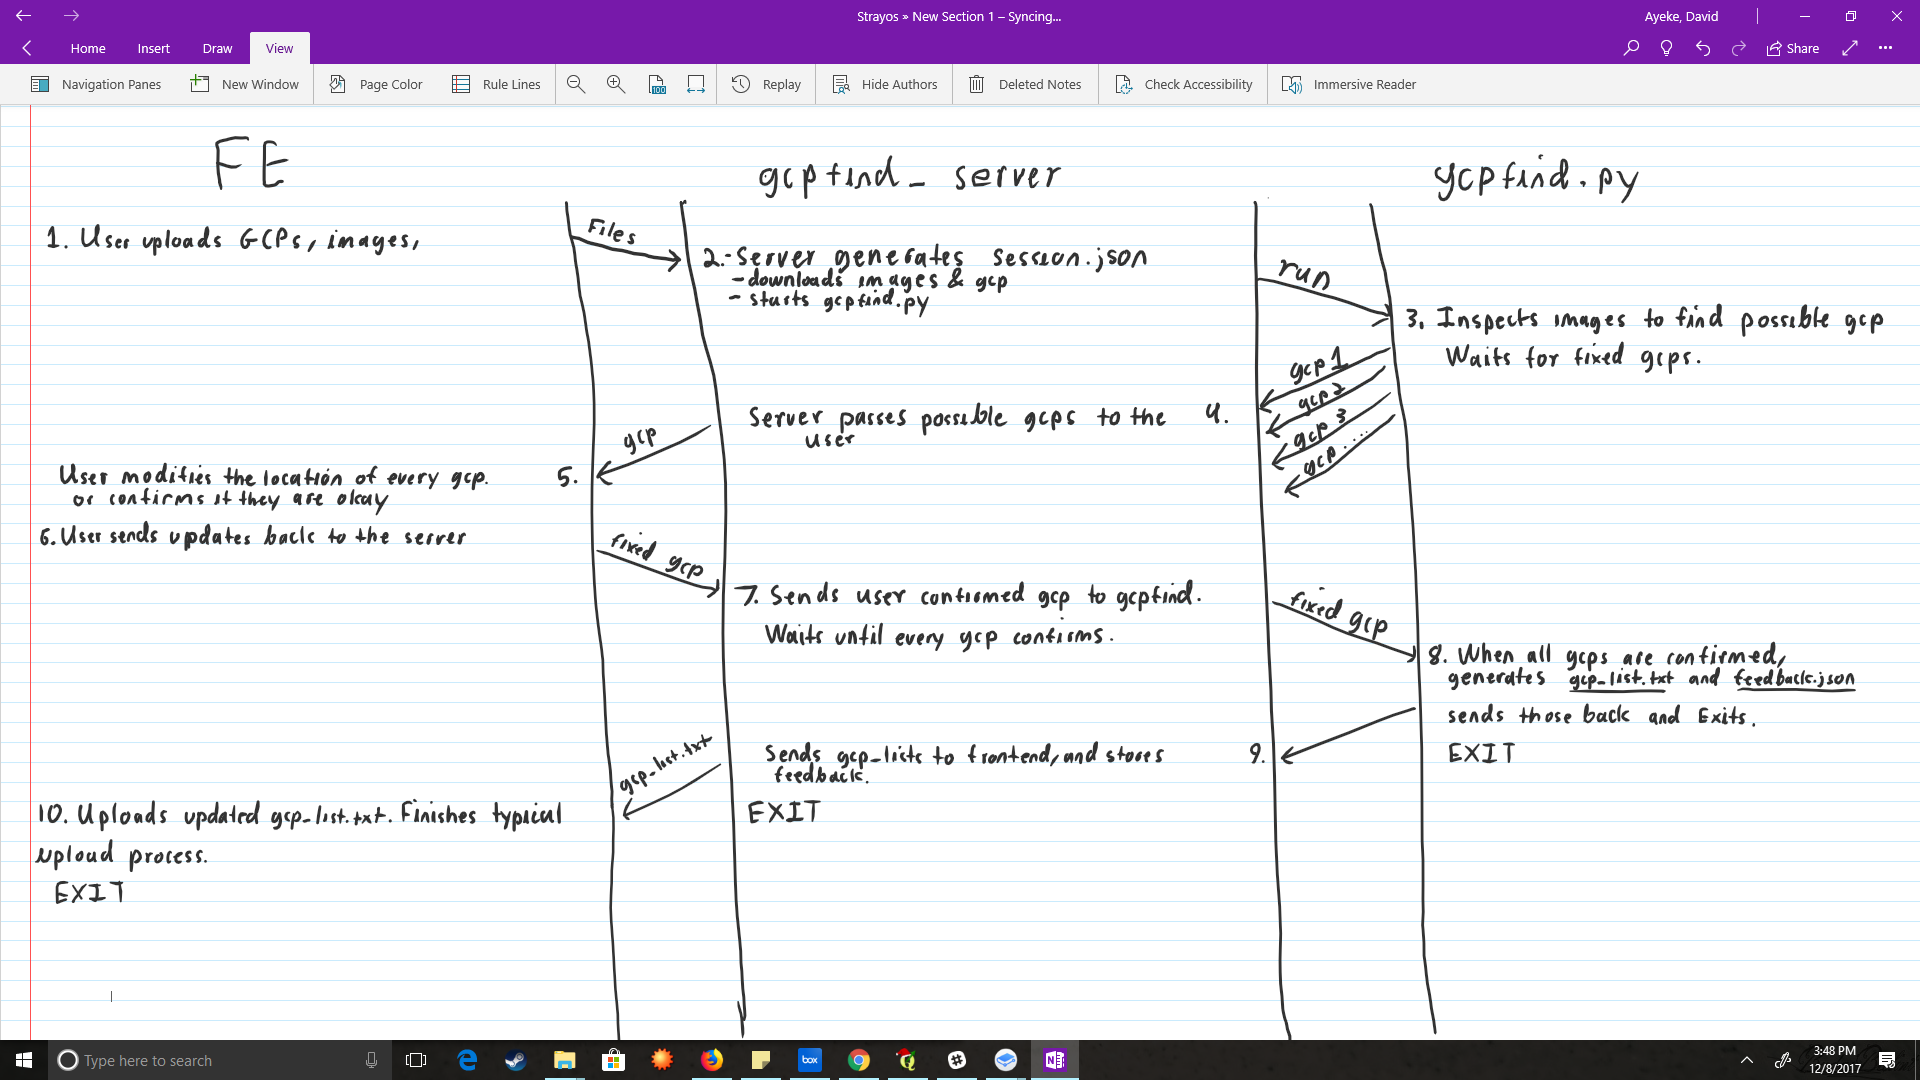 Strayos » New Section 1 – Syncing...
Ayeke, David
Home Insert Draw View
Share
Navigation Panes New Window Page Color Rule Lines 100 Replay Hide Authors Deleted Notes Check Accessibility Immersive Reader
FE
gcpfind_server
gcpfind.py
1. User uploads GCPs, images,
Files
2.- Server generates session.json
- downloads images & gcp
- starts gcpfind.py
run
3. Inspects images to find possible gcp
Waits for fixed gcps.
gcp 1
gcp 2
gcp 3
gcp....
4.
Server passes possible gcps to the
user
gcp
5.
User modifies the location of every gcp.
or confirms if they are okay
6. User sends updates back to the server
fixed gcp
7. Sends user confirmed gcp to gcpfind.
Waits until every gcp confirms.
fixed gcp
8. When all gcps are confirmed,
generates gcp_list.txt and feedback.json
sends those back and Exits.
EXIT
9.
Sends gcp_lists to frontend, and stores
feedback.
EXIT
gcp_list.txt
10. Uploads updated gcp_list.txt. Finishes typical
upload process.
EXIT
Type here to search
box
3:48 PM
12/8/2017